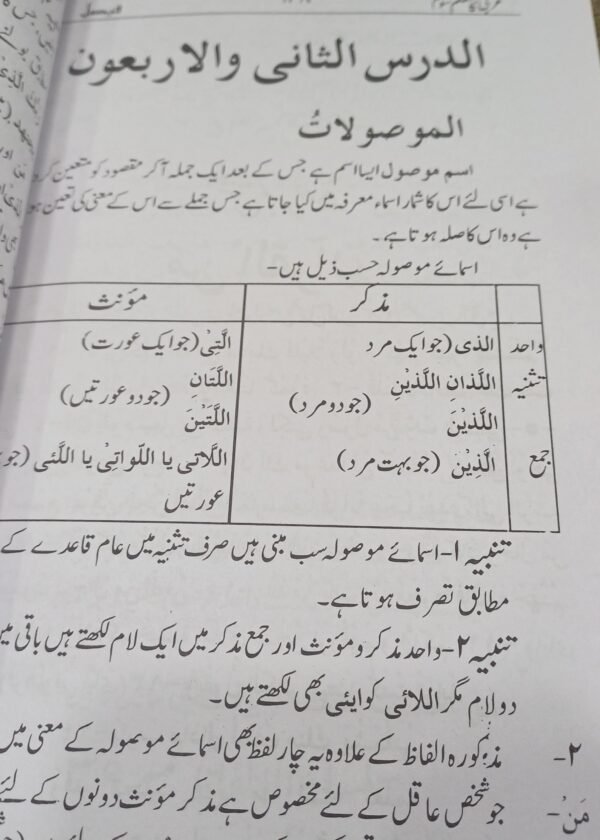 عربی کا معلم سوم
الدرس الثانی والاربعون
الموصولاتُ
اسم موصول ایسا اسم ہے جس کے بعد ایک جملہ آکر مقصود کو متعین کر
ہے اسی لئے اس کا شمار اسماء معرفہ میں کیا جاتا ہے جس جملے سے اس کے معنی کی تعین ہو
ہے وہ اس کا صلہ ہوتا ہے۔
اسمائے موصولہ حسب ذیل ہیں-
مذکر مؤنث
واحد الذی (جو ایک مرد الَّتِیْ (جو ایک عورت)
تثنیہ اللَّذانِ اللَّذَیْنِ (جو دو مرد) اللَّتَانِ (جو دو عورتیں)
اللَّذَیْنَ اللَّتَیْنَ
جمع الَّذِیْنَ (جو بہت مرد) اللَّاتی یا اللَّواتِیْ یا اللَّئی (جو
عورتیں
تنبیہ ۱-اسمائے موصولہ سب مبنی ہیں صرف تثنیہ میں عام قاعدے کے
مطابق تصرف ہوتا ہے۔
تنبیہ ۲-واحد مذکر و مؤنث اور جمع مذکر میں ایک لام لکھتے ہیں باقی میں
دو لام مگر اللائی کو ایئی بھی لکھتے ہیں۔
۲- مذکورہ الفاظ کے علاوہ یہ چار لفظ بھی اسمائے موصولہ کے معنی میں
مَنْ- جو شخص عاقل کے لئے مخصوص ہے مذکر مؤنث دونوں کے لئے